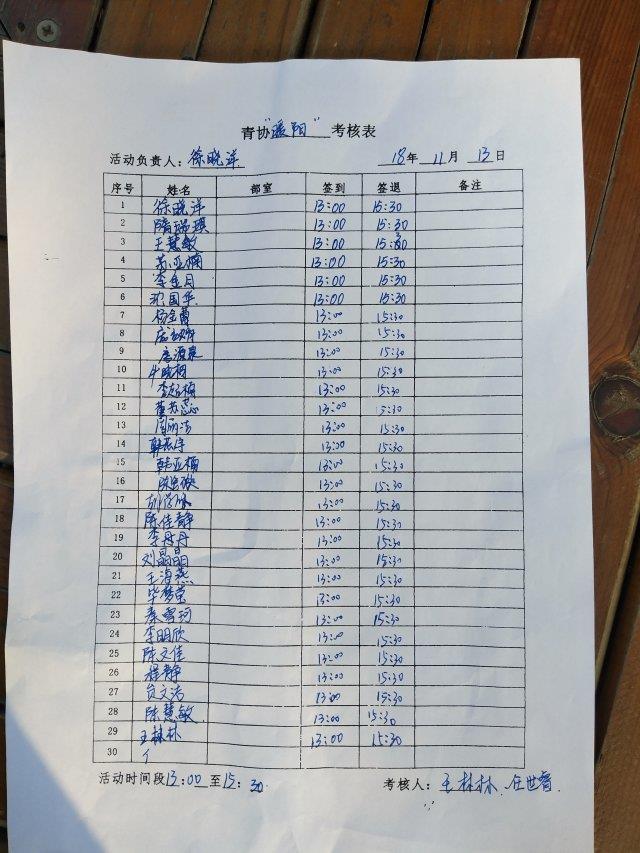 青协“暖阳”考核表
活动负责人：徐晓洋 18年 11月 13日
序号 姓名 部室 签到 签退 备注
1 徐晓洋 13:00 15:30
2 隋瑞琪 13:00 15:30
3 王慧敏 13:00 15:30
4 苏亚楠 13:00 15:30
5 李金月 13:00 15:30
6 邢国华 13:00 15:30
7 杨金尊 13:00 15:30
8 13:00 15:30
9 13:00 15:30
10 牛晓楠 13:00 15:30
11 13:00 15:30
12 董苏蕊 13:00 15:30
13 周丽洁 13:00 15:30
14 13:00 15:30
15 韩亚楠 13:00 15:30
16 13:00 15:30
17 13:00 15:30
18 陈佳静 13:00 15:30
19 李丹丹 13:00 15:30
20 刘晶晶 13:00 15:30
21 王海燕 13:00 15:30
22 毕梦莹 13:00 15:30
23 秦雪河 13:00 15:30
24 李明欣 13:00 15:30
25 陈文佳 13:00 15:30
26 程静 13:00 15:30
27 贠文洁 13:00 15:30
28 陈慧敏 13:00 15:30
29 王林林 13:00 15:30
30
活动时间段13:00至15:30 考核人：王林林、任世睿